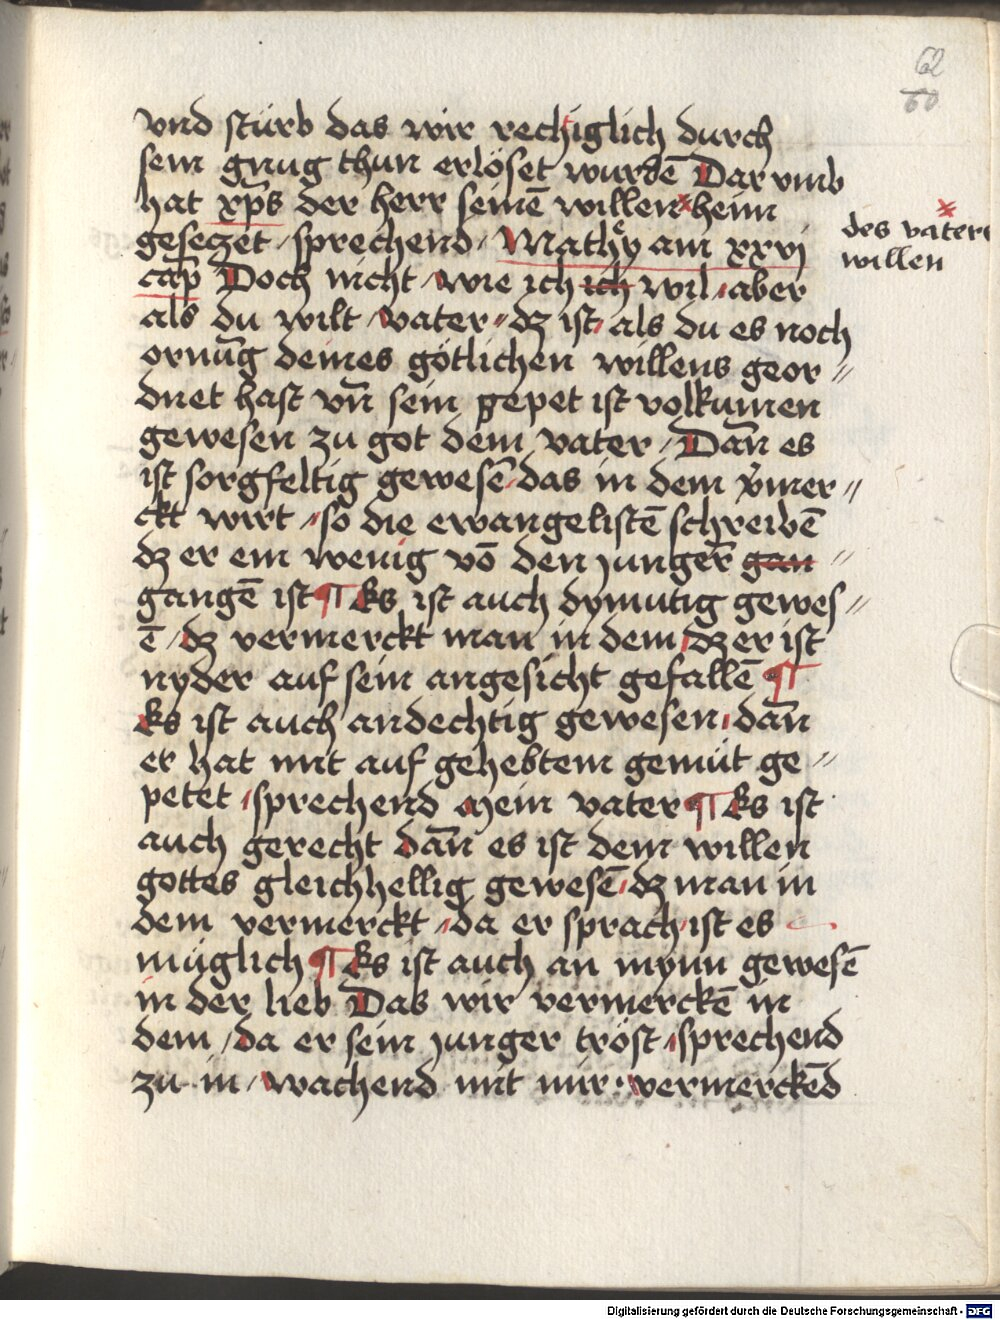 62
60
vnd stürb das wir rechtiglich durch
sein gnug thun erlöset wurdē Dar vmb
hat xp̄s der herr seinē willen × heim
geseczet / sprechend / Mathey am xxvi
cap̄ Doch nicht / wie ich ich wil / aber
als du wilt / vater / dz ist / als du es noch
ornūg deines götlichen willens geor //
dnet hast vn̄ sein gepet ist volkumen
gewesen zu got dem vater / Dan̄ es
ist sorgfeltig gewesē / das in dem v̄mer //
ckt wirt / so die ewangelistē schreibē
dz er ein wenig vō den jungern̄ gan //
gangē ist ¶ Es ist auch dymutig gewes //
ē / dz vermerckt man in dem / dz er ist
nyder auf sein angesicht gefallē ¶
Es ist auch andechtig gewesen / dan̄
er hat mit auf gehebtem gemüt ge //
petet / sprechend mein vater ¶ Es ist
auch gerecht dan̄ es ist dem willen
gottes gleichhellig gewesē / dz man in
dem vermerckt / da er sprach / ist es
müglich ¶ Es ist auch an mynn gewesē
in der lieb Das wir vermerckē in
dem / da er sein junger tröst / sprechend
zu in / wachend mit mir / vermerckēd
×
des vaters
willen
Digitalisierung gefördert durch die Deutsche Forschungsgemeinschaft - DFG